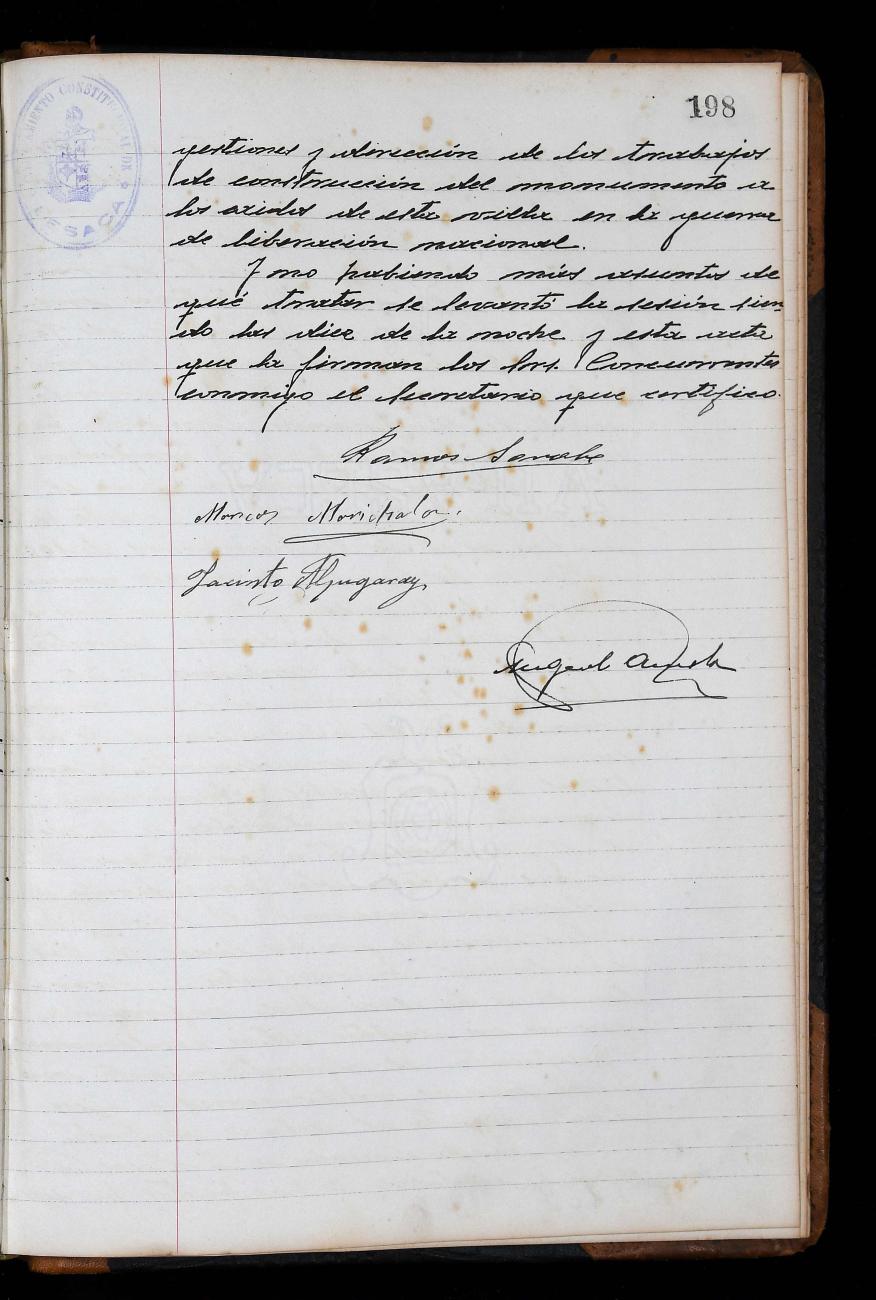 198
AYUNTAMIENTO CONSTITUCIONAL DE
LESACA
gestiones y dirección de los trabajos
de construcción del monumento a
los caidos de esta villa en la guerra
de liberación nacional.
Y no habiendo más asuntos de
qué tratar se levantó la sesión sien-
do las diez de la noche y esta acta
que la firman los Srs. Concurrentes
conmigo el Secretario que certifico.
Ramos
Marcos Marichalar.
Jacinto
Miguel